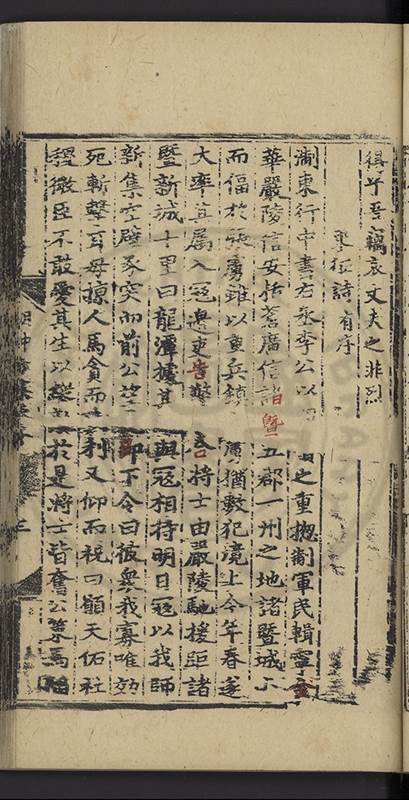 得乎吾竊哀丈夫之非烈
寒松詩有序
浙東行中書右丞李公以 之重揔制軍民輯寧金
華嚴陵信安括蒼廣信諸曁五郡一州之地諸曁城小
而偪於張虜雖以重兵鎮 猶數犯境上今年春遂
大率其屬入冦邊吏告警公將士由嚴陵馳援距諸
曁新城十里曰龍潭據其 與冦相待明日冦以我師
新集空壁豕突而前公 即下令曰彼衆我寡唯効
死斬擊 毋掠人馬貪而 利又仰而祝曰願天佑社
稷微臣不敢愛其生以 於是將士皆奮公策馬
三